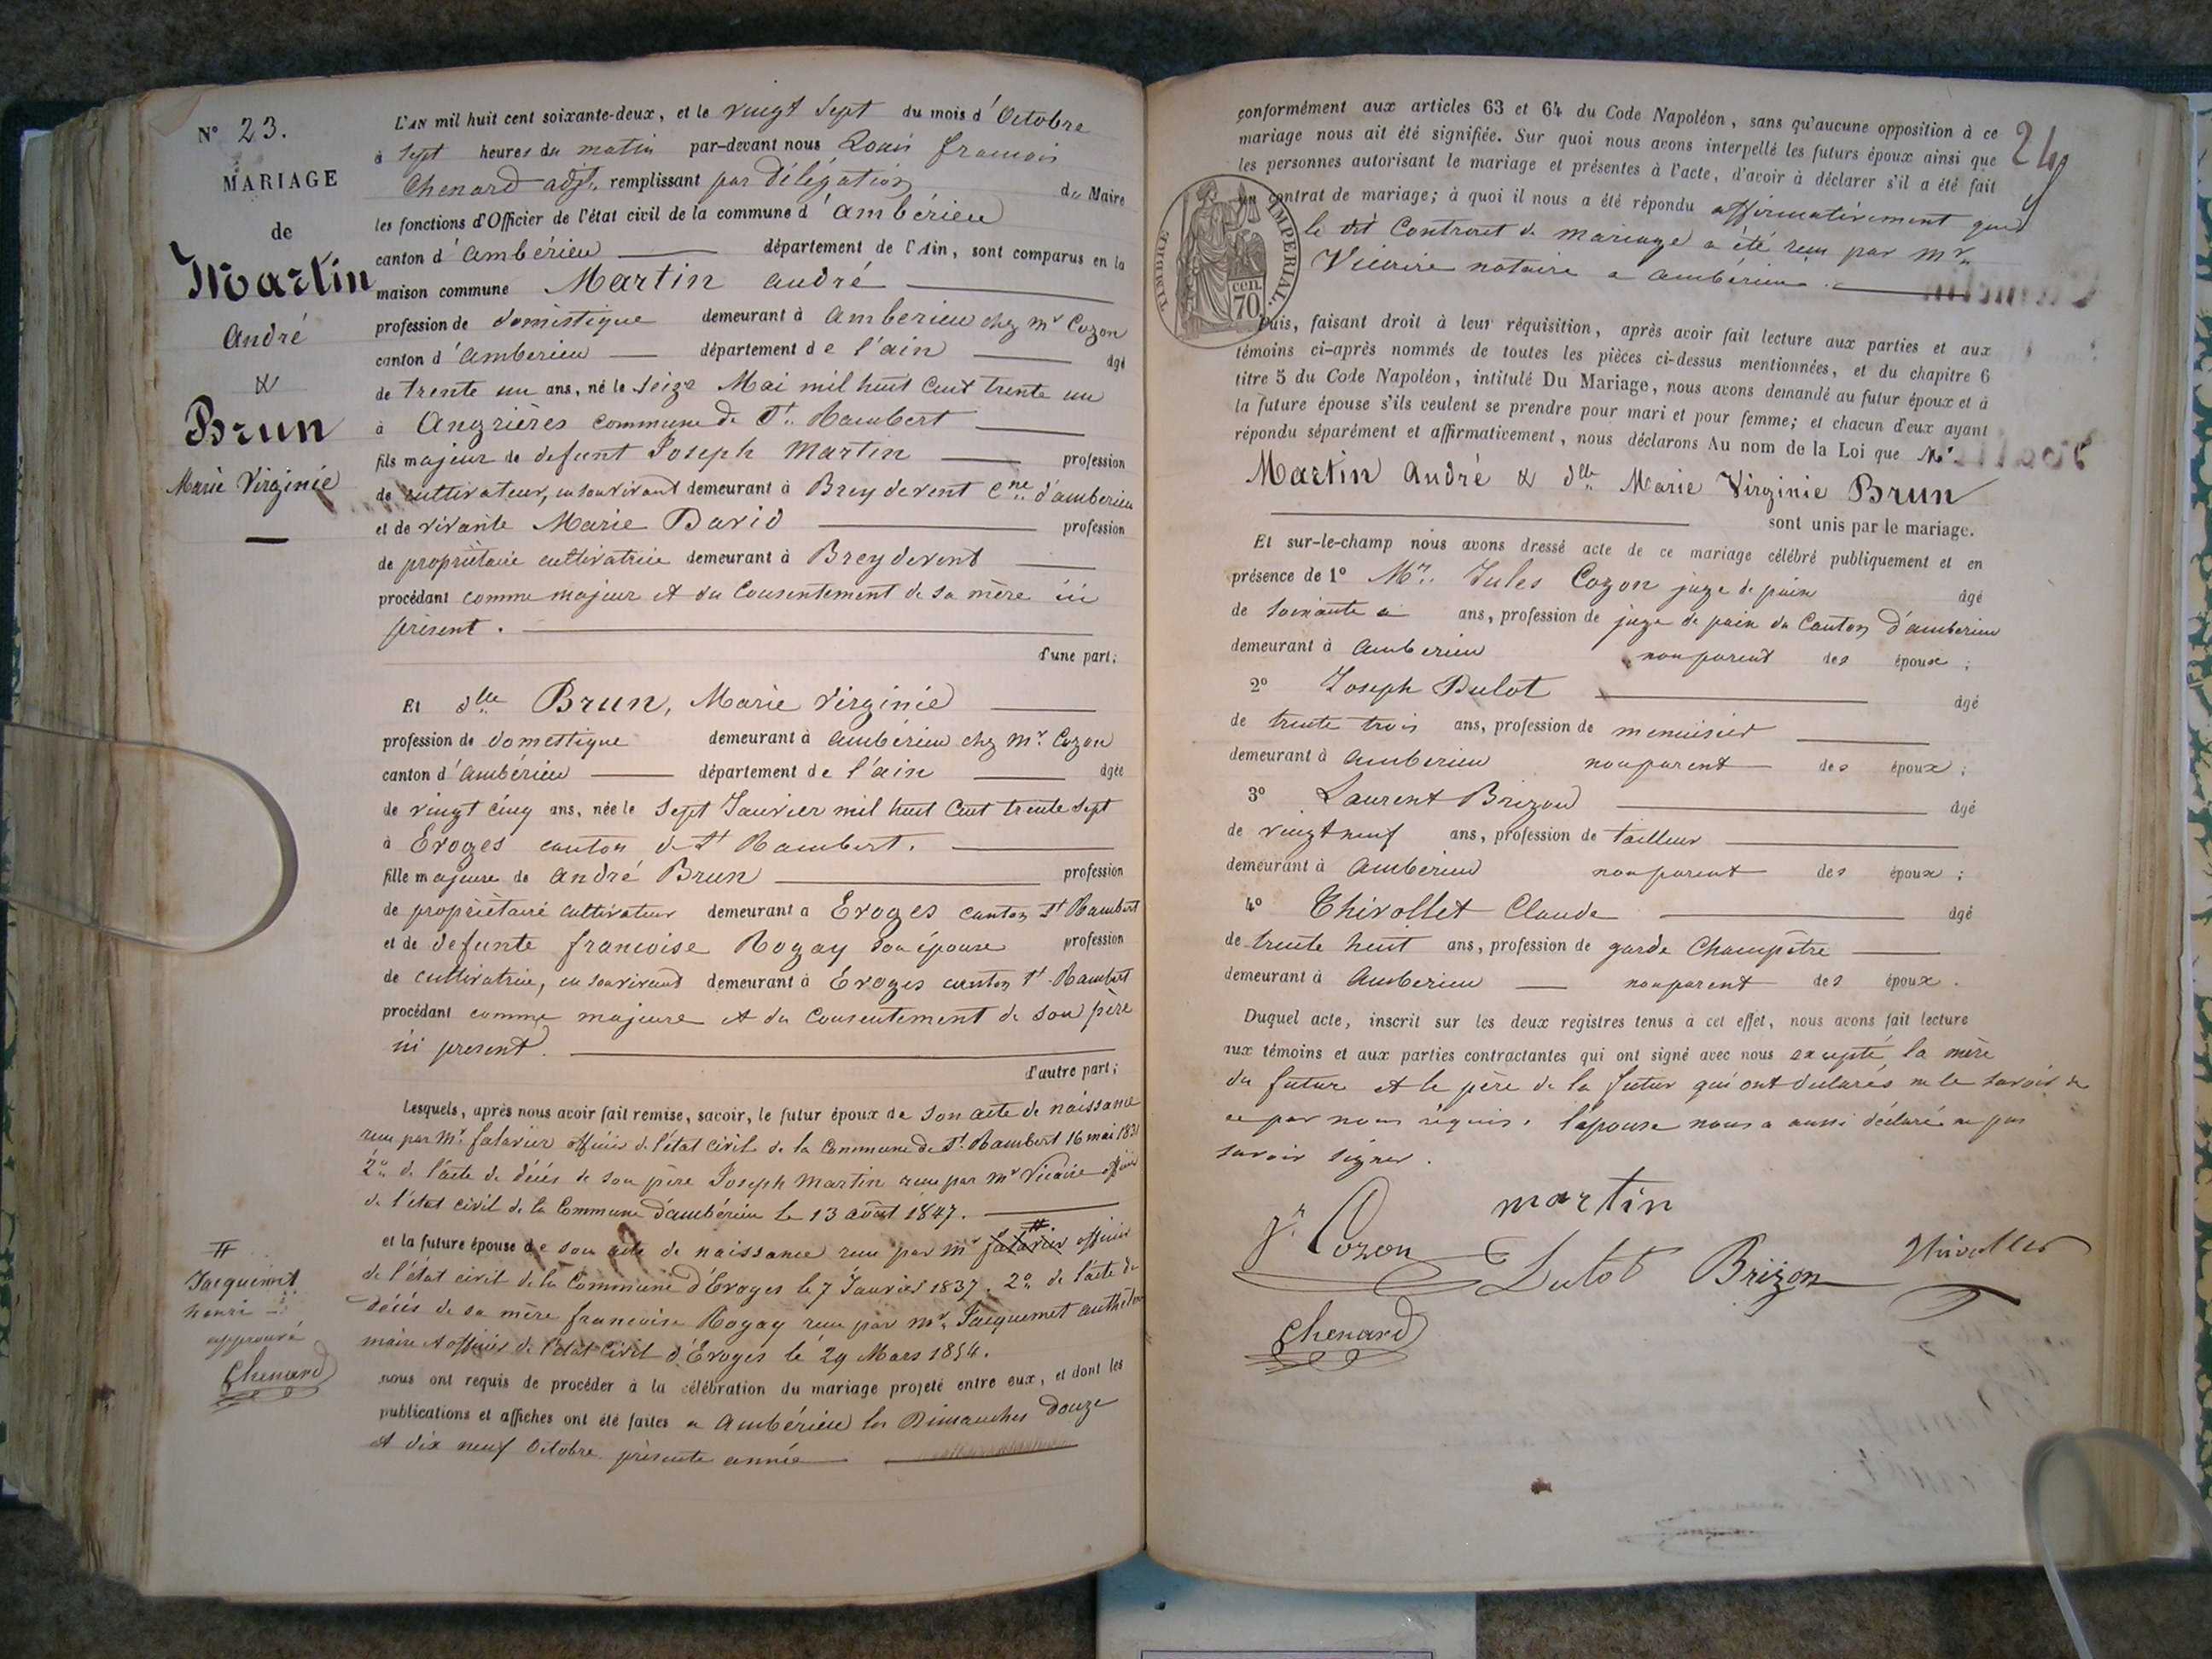 N° 23.
MARIAGE
de
Martin
André
&
Brun
Marie Virginie
L'AN mil huit cent soixante-deux, et le vingt sept du mois d'Octobre
à sept heures du matin par-devant nous Louis francois
Chenard adjt. remplissant par délégation du Maire
les fonctions d'Officier de l'état civil de la commune d'ambérieu
canton d'ambérieu département de l'Ain, sont comparus en la
maison commune Martin andré
profession de domestique demeurant à ambérieu chez mr Cozon
canton d'amberieu département de l'ain âgé
de trente un ans, né le seize Mai mil huit cent trente un
à Angrières commune de St. Rambert
fils majeur de defunt Joseph Martin profession
de cultivateur, en son vivant demeurant à Breydevent Cne d'amberieu
et de vivante Marie David profession
de propriétaire cultivatrice demeurant à Breydevent
procédant comme majeur et du Consentement de sa mère ici
présent.
d'une part;
Et dlle Brun, Marie Virginie
profession de domestique demeurant à ambérieu chez mr. Cozon
canton d'ambérieu département de l'ain âgée
de vingt cinq ans, née le sept Janvier mil huit cent trente sept
à Evoges canton de St Rambert.
fille majeure de andré Brun profession
de propriétaire cultivateur demeurant a Evoges canton St Rambert
et de defunte francoise Rogay son épouse profession
de cultivatrice, en son vivant demeurant à Evoges canton St Rambert
procédant comme majeure et du Consentement de son père
ici present.
d'autre part;
Lesquels, après nous avoir fait remise, savoir, le futur époux de son acte de naissance
recu par Mr. falavier officier de l'état civil de la Commune de St. Rambert 16 mai 1831
2o de l'acte de décès de son père Joseph Martin recu par mr Vicaire officier
de l'état civil de la Commune d'ambérieu le 13 août 1847.
et la future épouse de son acte de naissance recu par mr falavier # officier
de l'état civil de la Commune d'Evoges le 7 Janvier 1837. 2o de l'acte de
décès de sa mère francoise Rogay recu par mr. Jacquemet
maire et officier de l'état civil d'Evoges le 29 Mars 1854.
#
Jacquemet
henri
approuvé
Chenard
nous ont requis de procéder à la célébration du mariage projeté entre eux, et dont les
publications et affiches ont été faites a Ambérieu les Dimanches douze
et dix neuf Octobre présente année
24
conformément aux articles 63 et 64 du Code Napoléon, sans qu'aucune opposition à ce
mariage nous ait été signifiée. Sur quoi nous avons interpellé les futurs époux ainsi que
les personnes autorisant le mariage et présentes à l'acte, d'avoir à déclarer s'il a été fait
un contrat de mariage; à quoi il nous a été répondu affirmativement que
le dit Contrat de mariage a été recu par mr.
Vicaire notaire a ambérieu.
TIMBRE IMPERIAL
70 cen.
Puis, faisant droit à leur réquisition, après avoir fait lecture aux parties et aux
témoins ci-après nommés de toutes les pièces ci-dessus mentionnées, et du chapitre 6
titre 5 du Code Napoléon, intitulé Du Mariage, nous avons demandé au futur époux et à
la future épouse s'ils veulent se prendre pour mari et pour femme; et chacun d'eux ayant
répondu séparément et affirmativement, nous déclarons Au nom de la Loi que Mr
Martin André & dlle Marie Virginie Brun
sont unis par le mariage.
Et sur-le-champ nous avons dressé acte de ce mariage célébré publiquement et en
présence de 1° Mr. Jules Cozon juge de paix âgé
de soixante ans, profession de juge de paix du Canton d'amberieu
demeurant à amberieu non parent des époux;
2° Joseph Dulot âgé
de trente trois ans, profession de menuisier
demeurant à amberieu non parent des époux;
3° Laurent Brizon âgé
de vingt neuf ans, profession de tailleur
demeurant à ambérieu non parent des époux;
4° Thivollet Claude âgé
de trente huit ans, profession de garde Champêtre
demeurant à amberieu non parent des époux.
Duquel acte, inscrit sur les deux registres tenus à cet effet, nous avons fait lecture
aux témoins et aux parties contractantes qui ont signé avec nous excepté la mère
du futur et le père de la futur qui ont declarés ne le savoir de
ce par nous requis. l'epouse nous a aussi déclaré ne pas
savoir signer.
martin
Jr. Cozon
Dulot
Brizon
Thivollet
Chenard